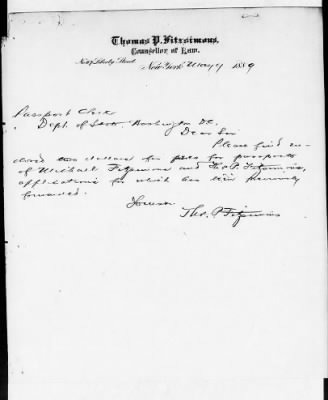 Thomas P. Fitzsimons,
Counsellor at Law.
Liberty Street New York, May 9 1889
Passport Clerk
Dept. of State Washington D.C.
Dear Sir
Please find en-
closed two dollars for fees for passports
of Michael Fitzsimons and Thos. P. Fitzsimons,
applications for which has been previously
forwarded.
Yours
Thos. P Fitzsimons